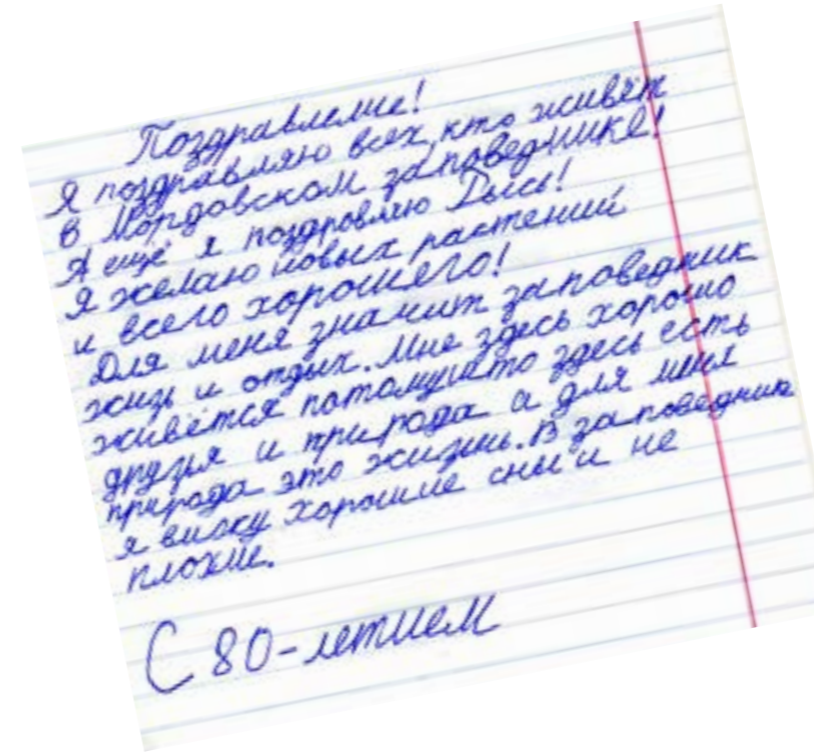 Поздравление!
Я поздравляю всех, кто живёт
в Мордовском заповеднике!
А ещё я поздровляю Рысь!
Я желаю новых растений
и всего хорошего!
Для меня значит заповедник
жизь и отдых. Мне здесь хорошо
живётся потомушто здесь есть
друзья и природа а для меня
природа это жизнь. В заповеднике
я вижу хорошие сны и не
плохие.
С 80-летием